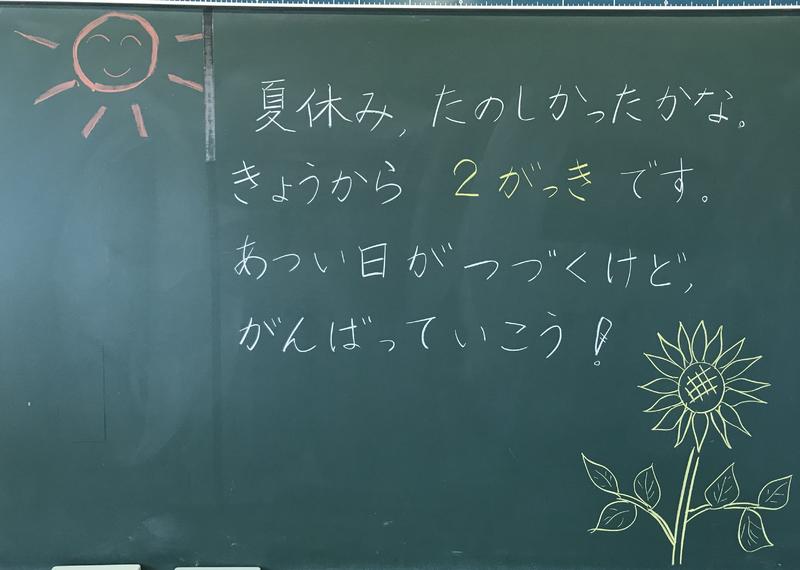 夏休み，たのしかったかな。
きょうから ２がっき です。
あつい日がつづくけど，
がんばっていこう！